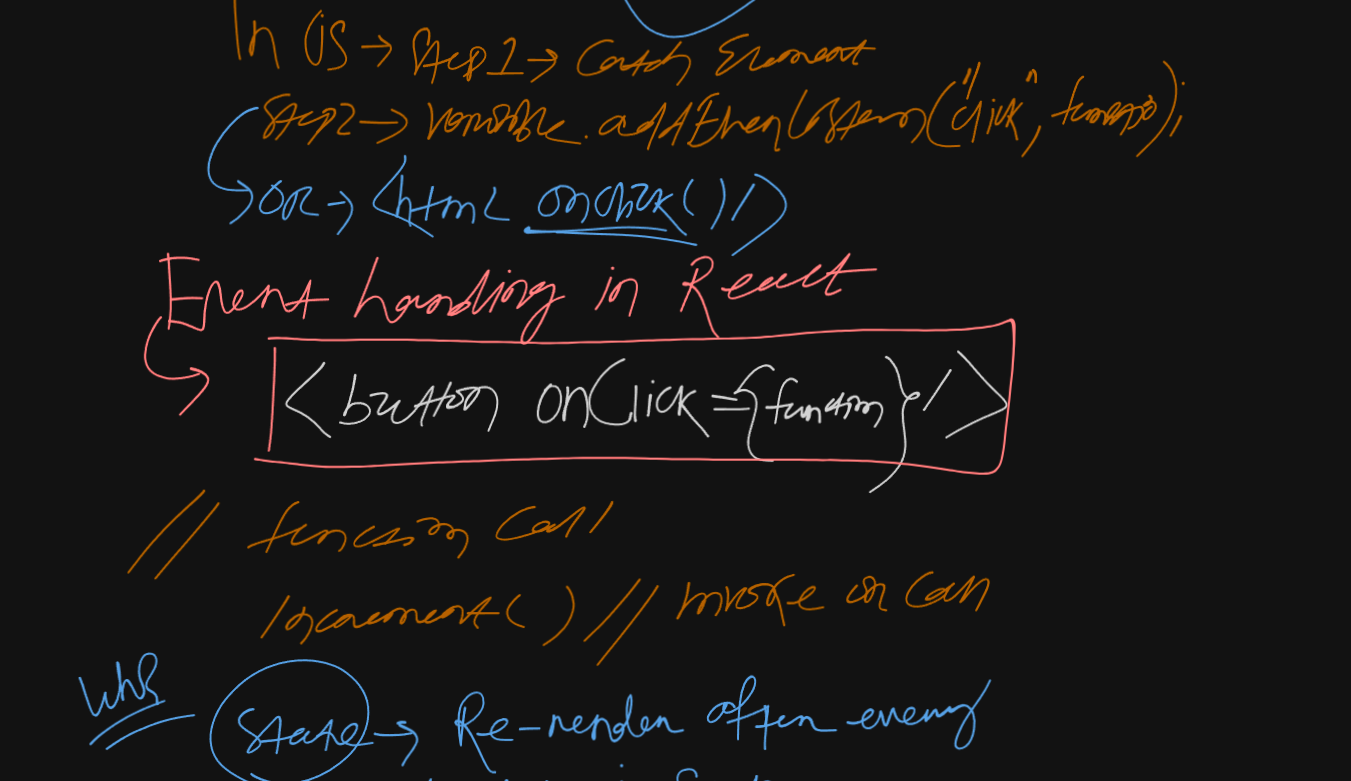 In JS → Step 1 → Catch Element
Step 2 → variable.addEvenListener("click", function);
OR → <html onclick()/>
Event handling in React
<button onClick={function}/>
// function call
Increment() // invoke or call
Why
State → Re-render after every